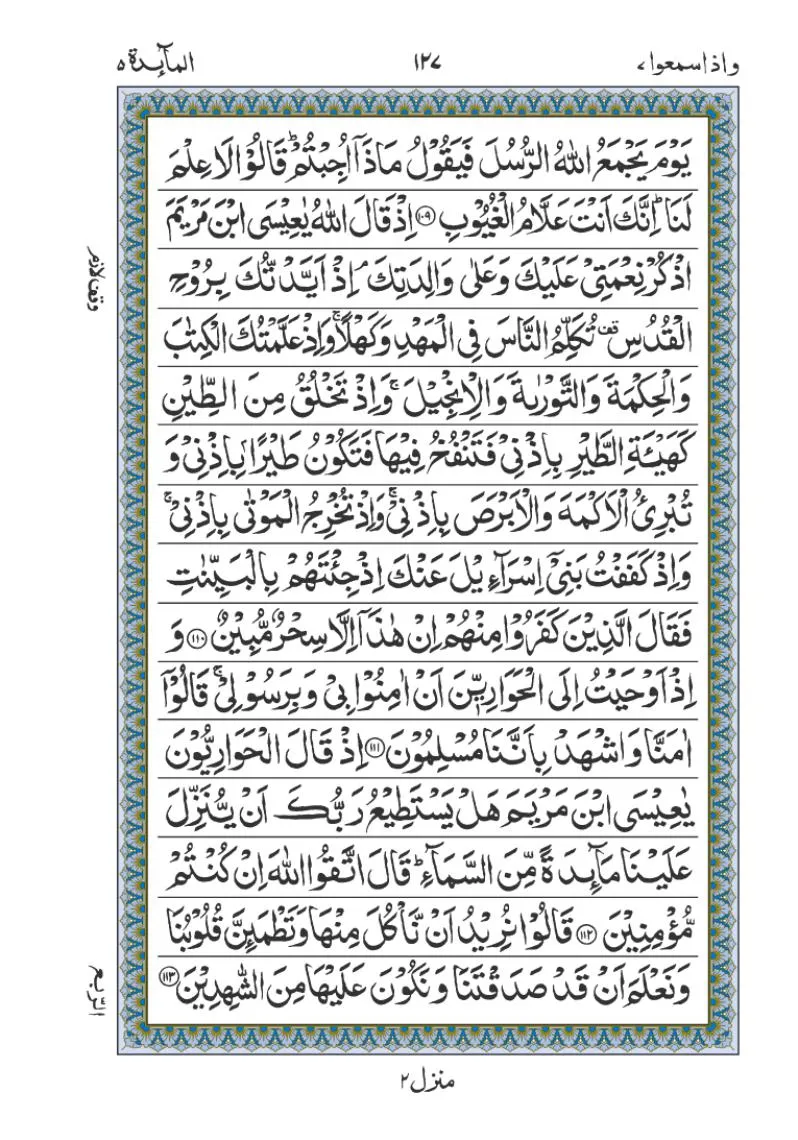 واذاسمعوا ۷
۱۲۷
المآئدة ۵
يَوْمَ يَجْمَعُ اللّٰهُ الرُّسُلَ فَيَقُوْلُ مَاذَاۤ اُجِبْتُمْ ؕ قَالُوْا لَا عِلْمَ
لَنَا ؕ اِنَّكَ اَنْتَ عَلَّامُ الْغُيُوْبِ ﴿۱۰۹﴾ اِذْ قَالَ اللّٰهُ يٰعِيْسَى ابْنَ مَرْيَمَ
اذْكُرْ نِعْمَتِىْ عَلَيْكَ وَعَلٰى وَالِدَتِكَ ۘ اِذْ اَيَّدْتُّكَ بِرُوْحِ
الْقُدُسِ قف تُكَلِّمُ النَّاسَ فِى الْمَهْدِ وَكَهْلًا ۚ وَاِذْ عَلَّمْتُكَ الْكِتٰبَ
وَالْحِكْمَةَ وَالتَّوْرٰىةَ وَالْاِنْجِيْلَ ۚ وَاِذْ تَخْلُقُ مِنَ الطِّيْنِ
كَهَيْئَةِ الطَّيْرِ بِاِذْنِىْ فَتَنْفُخُ فِيْهَا فَتَكُوْنُ طَيْرًۢا بِاِذْنِىْ وَ
تُبْرِئُ الْاَكْمَهَ وَالْاَبْرَصَ بِاِذْنِىْ ۚ وَاِذْ تُخْرِجُ الْمَوْتٰى بِاِذْنِىْ ۚ
وَاِذْ كَفَفْتُ بَنِىْۤ اِسْرَآءِيْلَ عَنْكَ اِذْ جِئْتَهُمْ بِالْبَيِّنٰتِ
فَقَالَ الَّذِيْنَ كَفَرُوْا مِنْهُمْ اِنْ هٰذَاۤ اِلَّا سِحْرٌ مُّبِيْنٌ ﴿۱۱۰﴾ وَ
اِذْ اَوْحَيْتُ اِلَى الْحَوَارِيّٖنَ اَنْ اٰمِنُوْا بِىْ وَبِرَسُوْلِىْ ۚ قَالُوْۤا
اٰمَنَّا وَاشْهَدْ بِاَنَّنَا مُسْلِمُوْنَ ﴿۱۱۱﴾ اِذْ قَالَ الْحَوَارِيُّوْنَ
يٰعِيْسَى ابْنَ مَرْيَمَ هَلْ يَسْتَطِيْعُ رَبُّكَ اَنْ يُّنَزِّلَ
عَلَيْنَا مَآئِدَةً مِّنَ السَّمَآءِ ؕ قَالَ اتَّقُوا اللّٰهَ اِنْ كُنْتُمْ
مُّؤْمِنِيْنَ ﴿۱۱۲﴾ قَالُوْا نُرِيْدُ اَنْ نَّاْكُلَ مِنْهَا وَتَطْمَئِنَّ قُلُوْبُنَا
وَنَعْلَمَ اَنْ قَدْ صَدَقْتَنَا وَنَكُوْنَ عَلَيْهَا مِنَ الشّٰهِدِيْنَ ﴿۱۱۳﴾
وقف لازم
الربع
منزل ۲